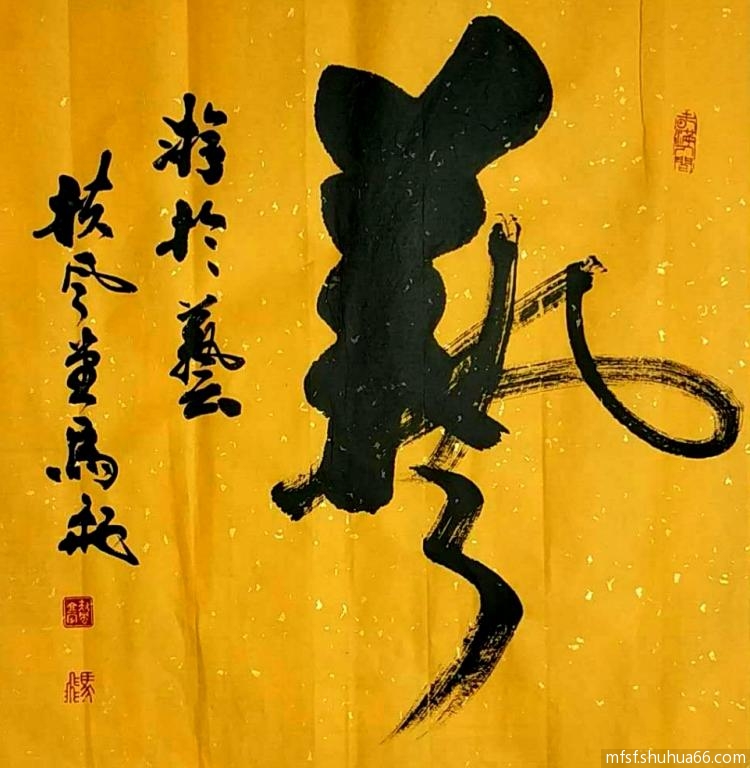 藝
游於藝
扶風堂馬飛
mfsf.shuhua66.com